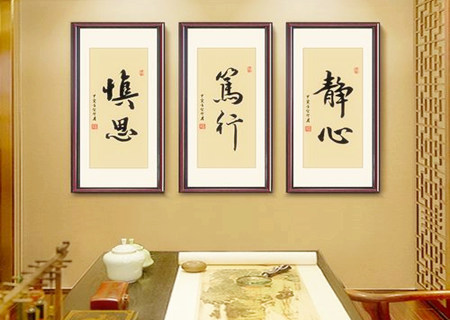 慎思
篤行
静心